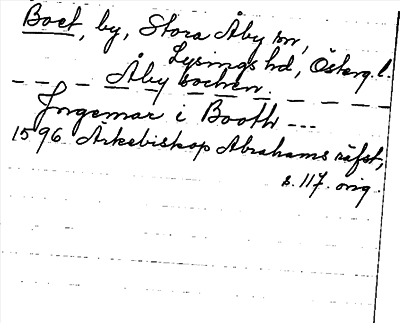 Boet, by, Stora Åby sn,
Lysings hd, Österg. l.
Åby socken.
Jngemar i Booth ---
1596 Ärkebiskop Abrahams räfst,
s. 117. orig.